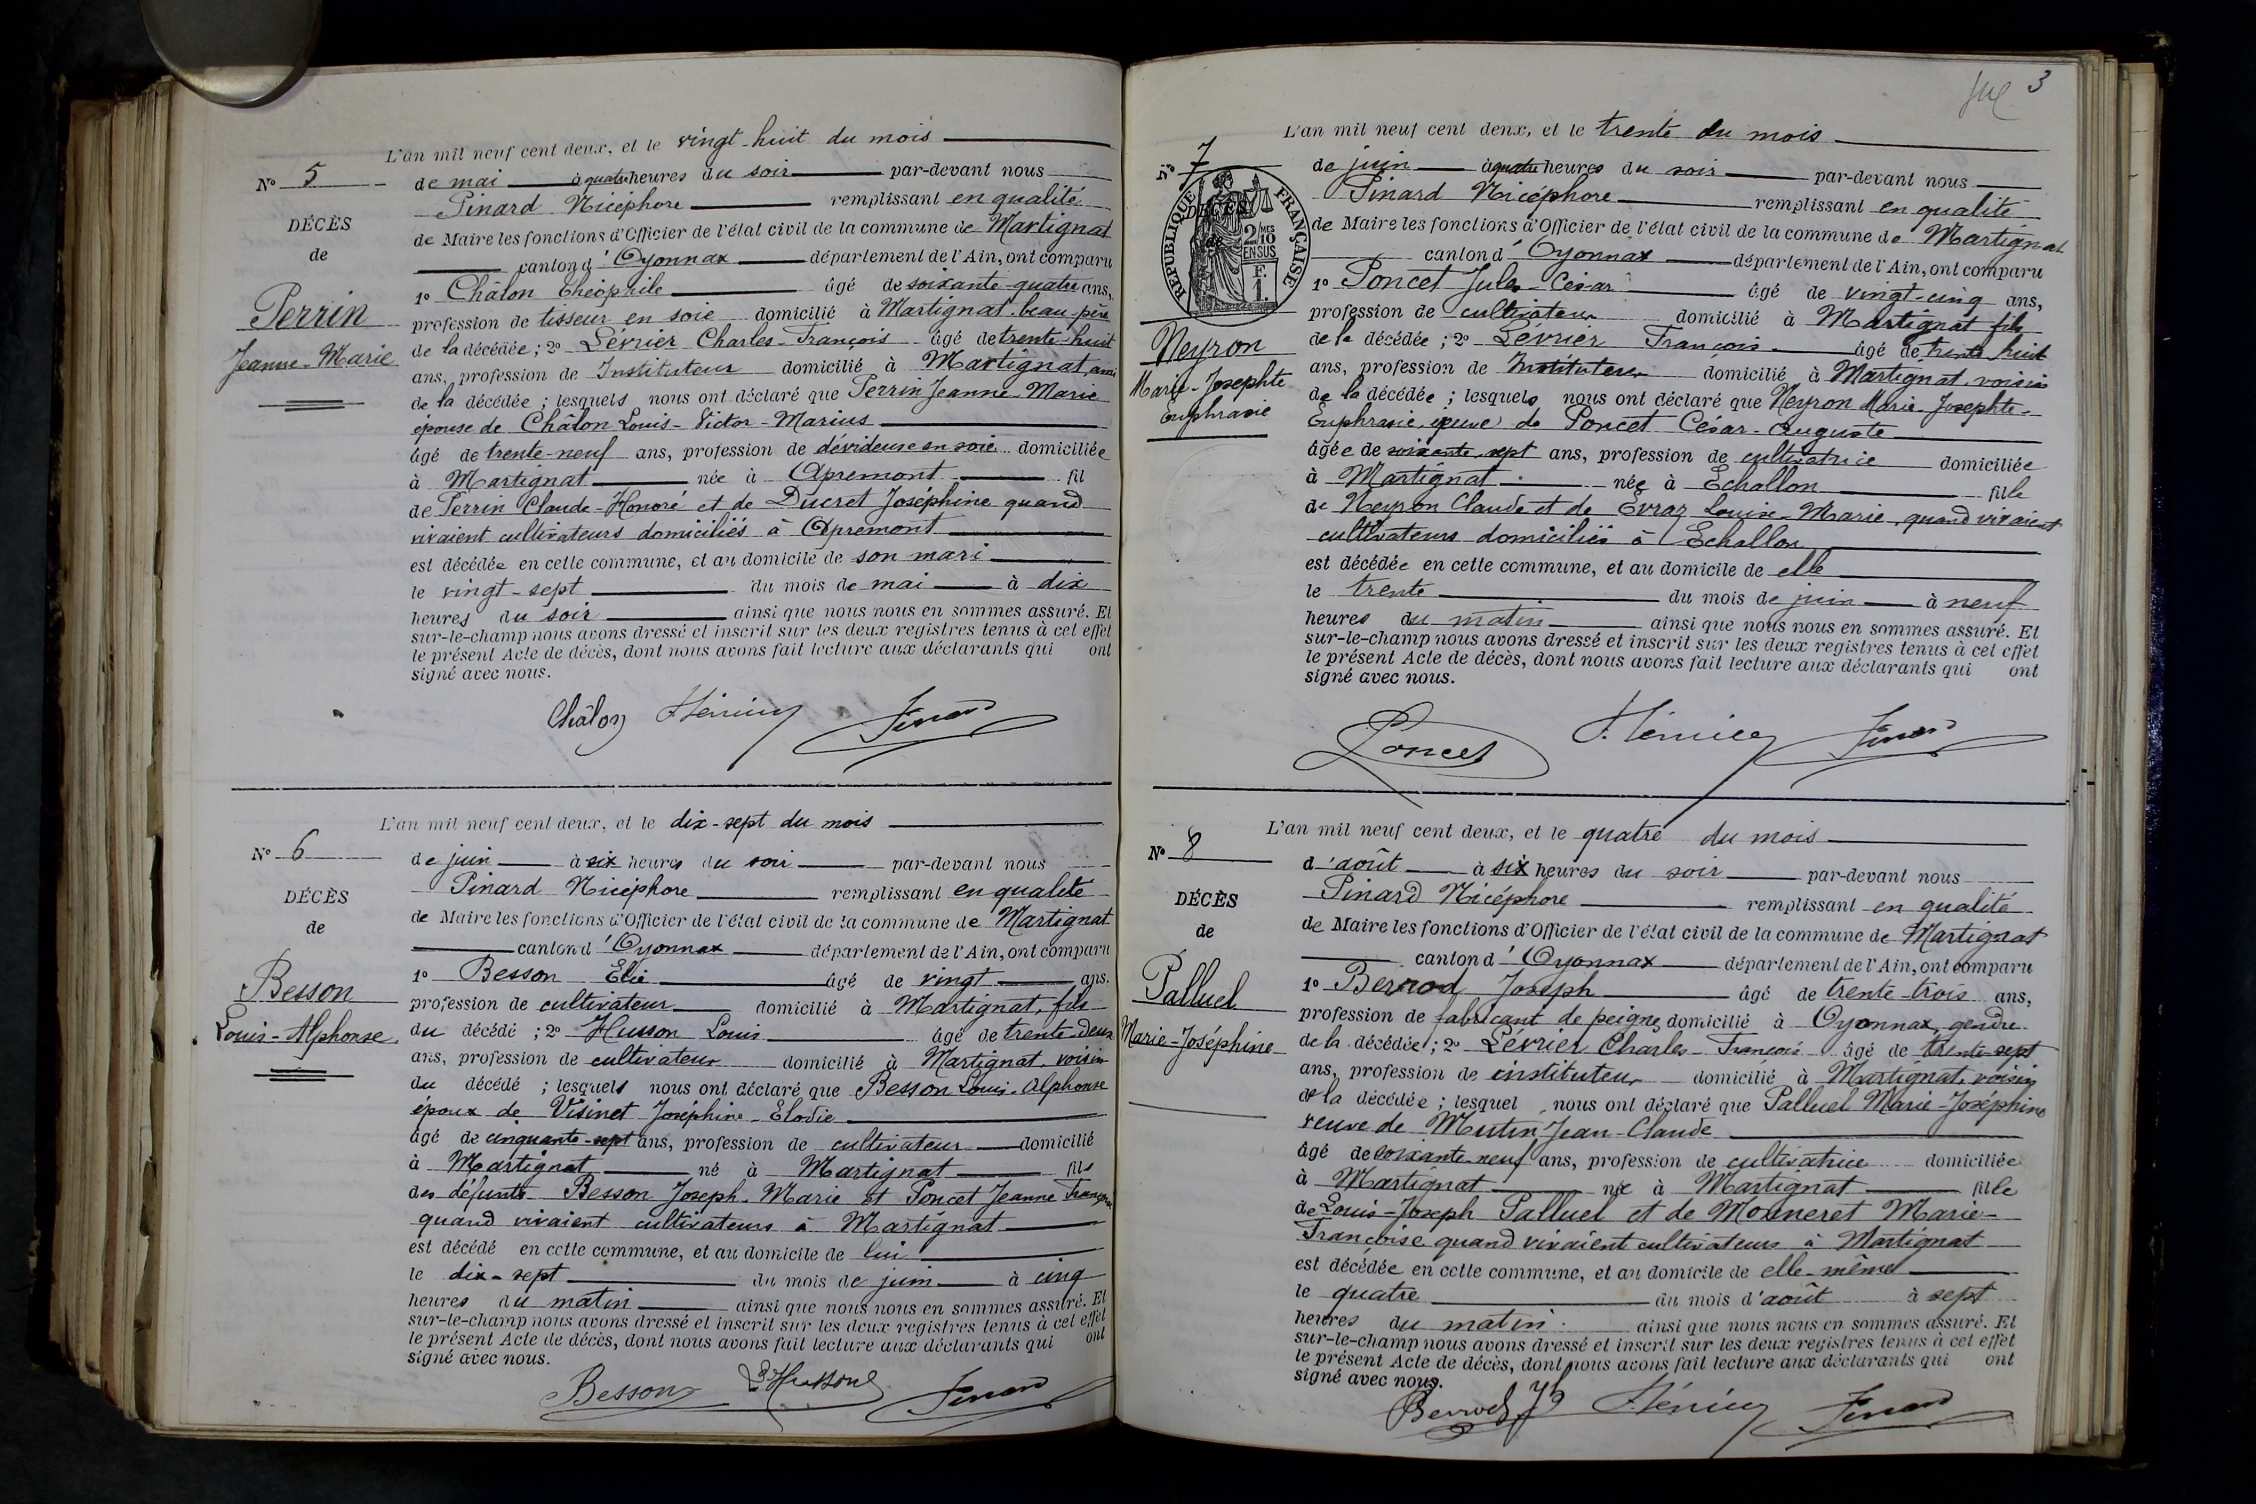 L'an mil neuf cent deux, et le vingt-huit du mois
N° 5
de mai à quatre heures du soir par-devant nous
Pinard Nicéphore remplissant en qualité
DÉCÈS
de Maire les fonctions d'Officier de l'état civil de la commune de Martignat
de
canton d'Oyonnax département de l'Ain, ont comparu
1° Châlon Théophile âgé de soixante-quatre ans,
Perrin
profession de tisseur en soie domicilié à Martignat, beau-père
Jeanne-Marie
de la décédée ; 2° Lévrier Charles-François âgé de trente-huit
ans, profession de Instituteur domicilié à Martignat, ami
de la décédée ; lesquels nous ont déclaré que Perrin Jeanne-Marie
épouse de Châlon Louis-Victor-Marius
âgé de trente-neuf ans, profession de dévideuse en soie domiciliée
à Martignat née à Apremont fil
de Perrin Claude-Honoré et de Ducret Joséphine quand
vivaient cultivateurs domiciliés à Apremont
est décédée en cette commune, et au domicile de son mari
le vingt-sept du mois de mai à dix
heures du soir ainsi que nous nous en sommes assuré. Et
sur-le-champ nous avons dressé et inscrit sur les deux registres tenus à cet effet
le présent Acte de décès, dont nous avons fait lecture aux déclarants qui ont
signé avec nous.
Châlon Pinard
L'an mil neuf cent deux, et le dix-sept du mois
N° 6
de juin à six heures du soir par-devant nous
Pinard Nicéphore remplissant en qualité
DÉCÈS
de Maire les fonctions d'Officier de l'état civil de la commune de Martignat
de
canton d'Oyonnax département de l'Ain, ont comparu
1° Besson Elie âgé de vingt ans.
Besson
profession de cultivateur domicilié à Martignat, fils
Louis-Alphonse
du décédé ; 2° Husson Louis âgé de trente-deux
ans, profession de cultivateur domicilié à Martignat, voisin
du décédé ; lesquels nous ont déclaré que Besson Louis-Alphonse
époux de Visinet Joséphine-Elodie
âgé de cinquante-sept ans, profession de cultivateur domicilié
à Martignat né à Martignat fils
des défunts Besson Joseph-Marie et Poncet Jeanne Françoise
quand vivaient cultivateurs à Martignat
est décédé en cette commune, et au domicile de lui
le dix-sept du mois de juin à cinq
heures du matin ainsi que nous nous en sommes assuré. Et
sur-le-champ nous avons dressé et inscrit sur les deux registres tenus à cet effet
le présent Acte de décès, dont nous avons fait lecture aux déclarants qui ont
signé avec nous.
Besson L Husson Pinard
3
L'an mil neuf cent deux, et le trente du mois
N° 7
de juin à quatre heures du soir par-devant nous
Pinard Nicéphore remplissant en qualité
RÉPUBLIQUE FRANÇAISE
2/10 MES
EN SUS
F.
1.
DÉCÈS
de
de Maire les fonctions d'Officier de l'état civil de la commune de Martignat
canton d'Oyonnax département de l'Ain, ont comparu
1° Poncet Jules-César âgé de vingt-cinq ans,
profession de cultivateur domicilié à Martignat fils
Neyron
de la décédée ; 2° Lévrier François âgé de trente-huit
Marie-Josephte
ans, profession de Instituteur domicilié à Martignat, voisin
Euphrasie
de la décédée ; lesquels nous ont déclaré que Neyron Marie-Josephte-
Euphrasie, épouse de Poncet César-Auguste
âgée de soixante-sept ans, profession de cultivatrice domiciliée
à Martignat née à Echallon fille
de Neyron Claude et de Evraz Louise-Marie, quand vivaient
cultivateurs domiciliés à Echallon
est décédée en cette commune, et au domicile de elle
le trente du mois de juin à neuf
heures du matin ainsi que nous nous en sommes assuré. Et
sur-le-champ nous avons dressé et inscrit sur les deux registres tenus à cet effet
le présent Acte de décès, dont nous avons fait lecture aux déclarants qui ont
signé avec nous.
Poncet Pinard
L'an mil neuf cent deux, et le quatre du mois
N° 8
d'août à six heures du soir par-devant nous
Pinard Nicéphore remplissant en qualité
DÉCÈS
de Maire les fonctions d'Officier de l'état civil de la commune de Martignat
de
canton d'Oyonnax département de l'Ain, ont comparu
1° Berrod Joseph âgé de trente-trois ans,
Palluel
profession de fabricant de peignes domicilié à Oyonnax, gendre
Marie-Joséphine
de la décédée ; 2° Lévrier Charles-François âgé de trente-sept
ans, profession de instituteur domicilié à Martignat, voisin
de la décédée ; lesquel nous ont déclaré que Palluel Marie-Joséphine
veuve de Mutin Jean-Claude
âgé de soixante-neuf ans, profession de cultivatrice domiciliée
à Martignat née à Martignat fille
de Louis-Joseph Palluel et de Monneret Marie-
Françoise quand vivaient cultivateurs à Martignat
est décédée en cette commune, et au domicile de elle-même
le quatre du mois d'août à sept
heures du matin ainsi que nous nous en sommes assuré. Et
sur-le-champ nous avons dressé et inscrit sur les deux registres tenus à cet effet
le présent Acte de décès, dont nous avons fait lecture aux déclarants qui ont
signé avec nous.
Berrod Jh Pinard